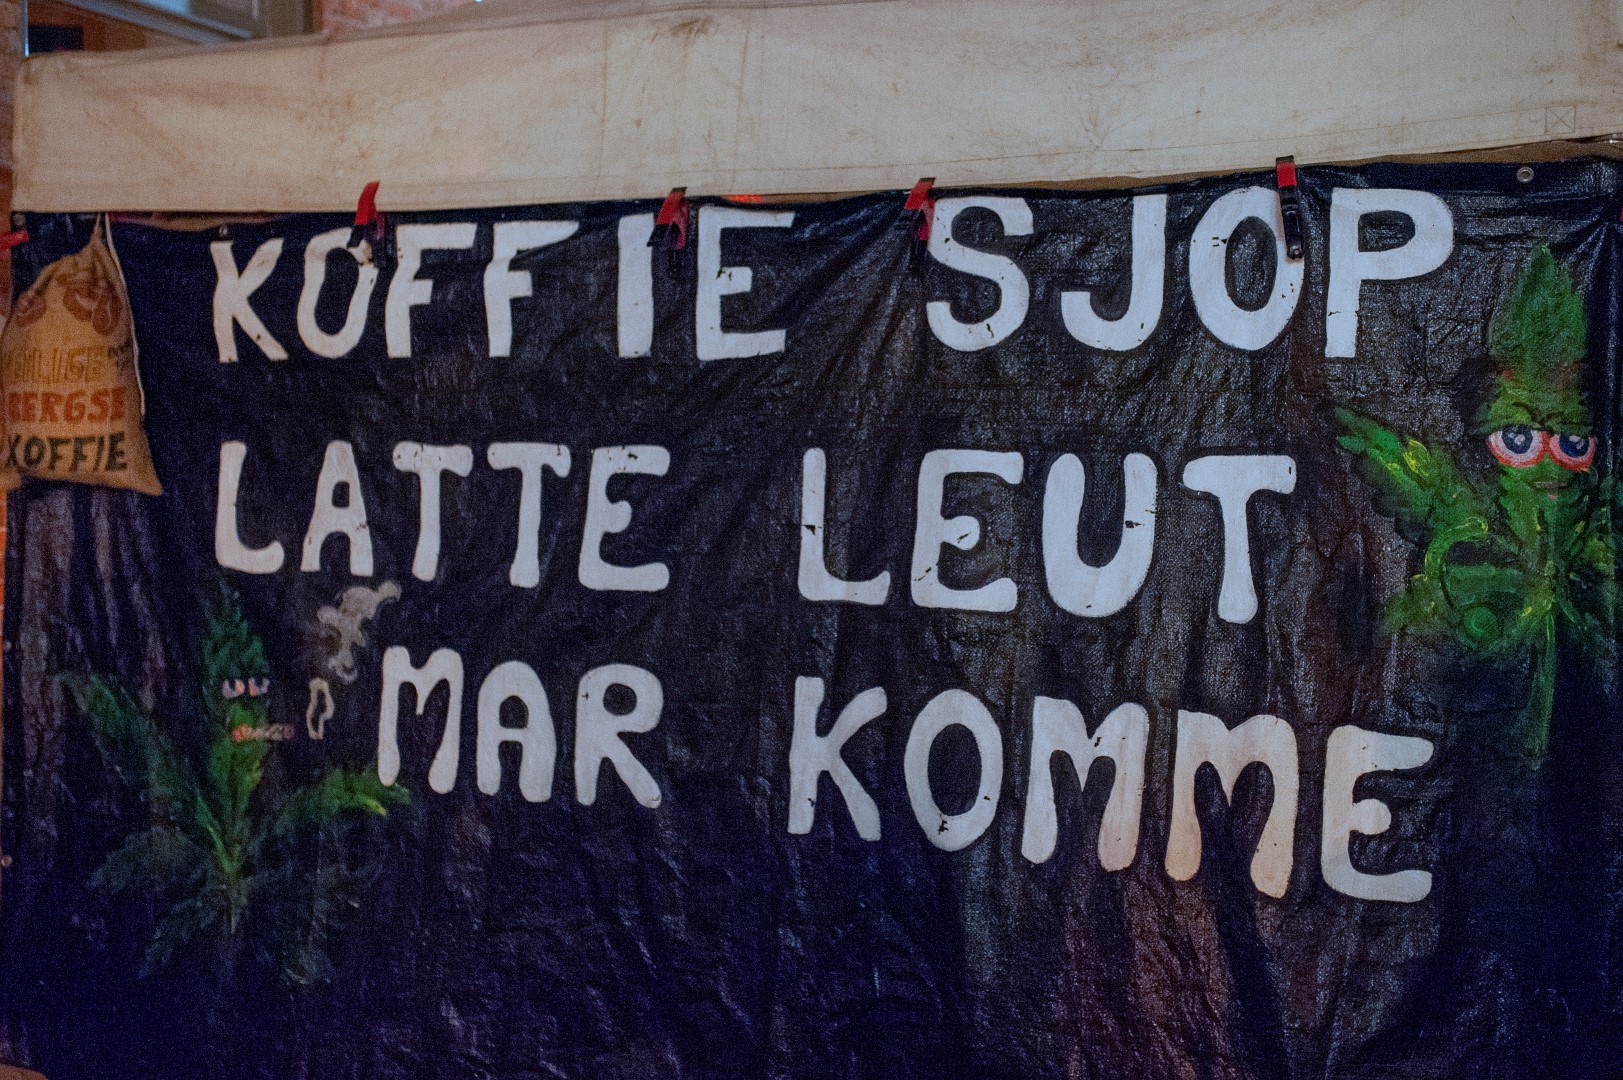 KOFFIE SJOP
LATTE LEUT
MAR KOMME
BERGSE
KOFFIE